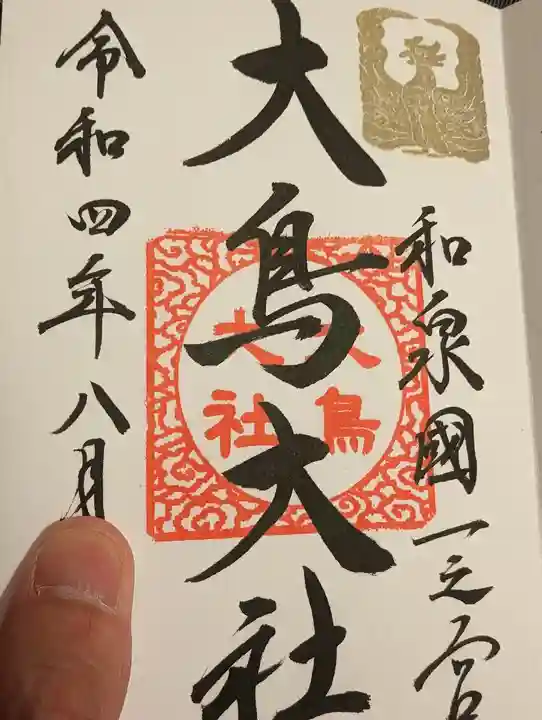 和泉國一之宮
大鳥大社
大鳥大社
令和四年八月